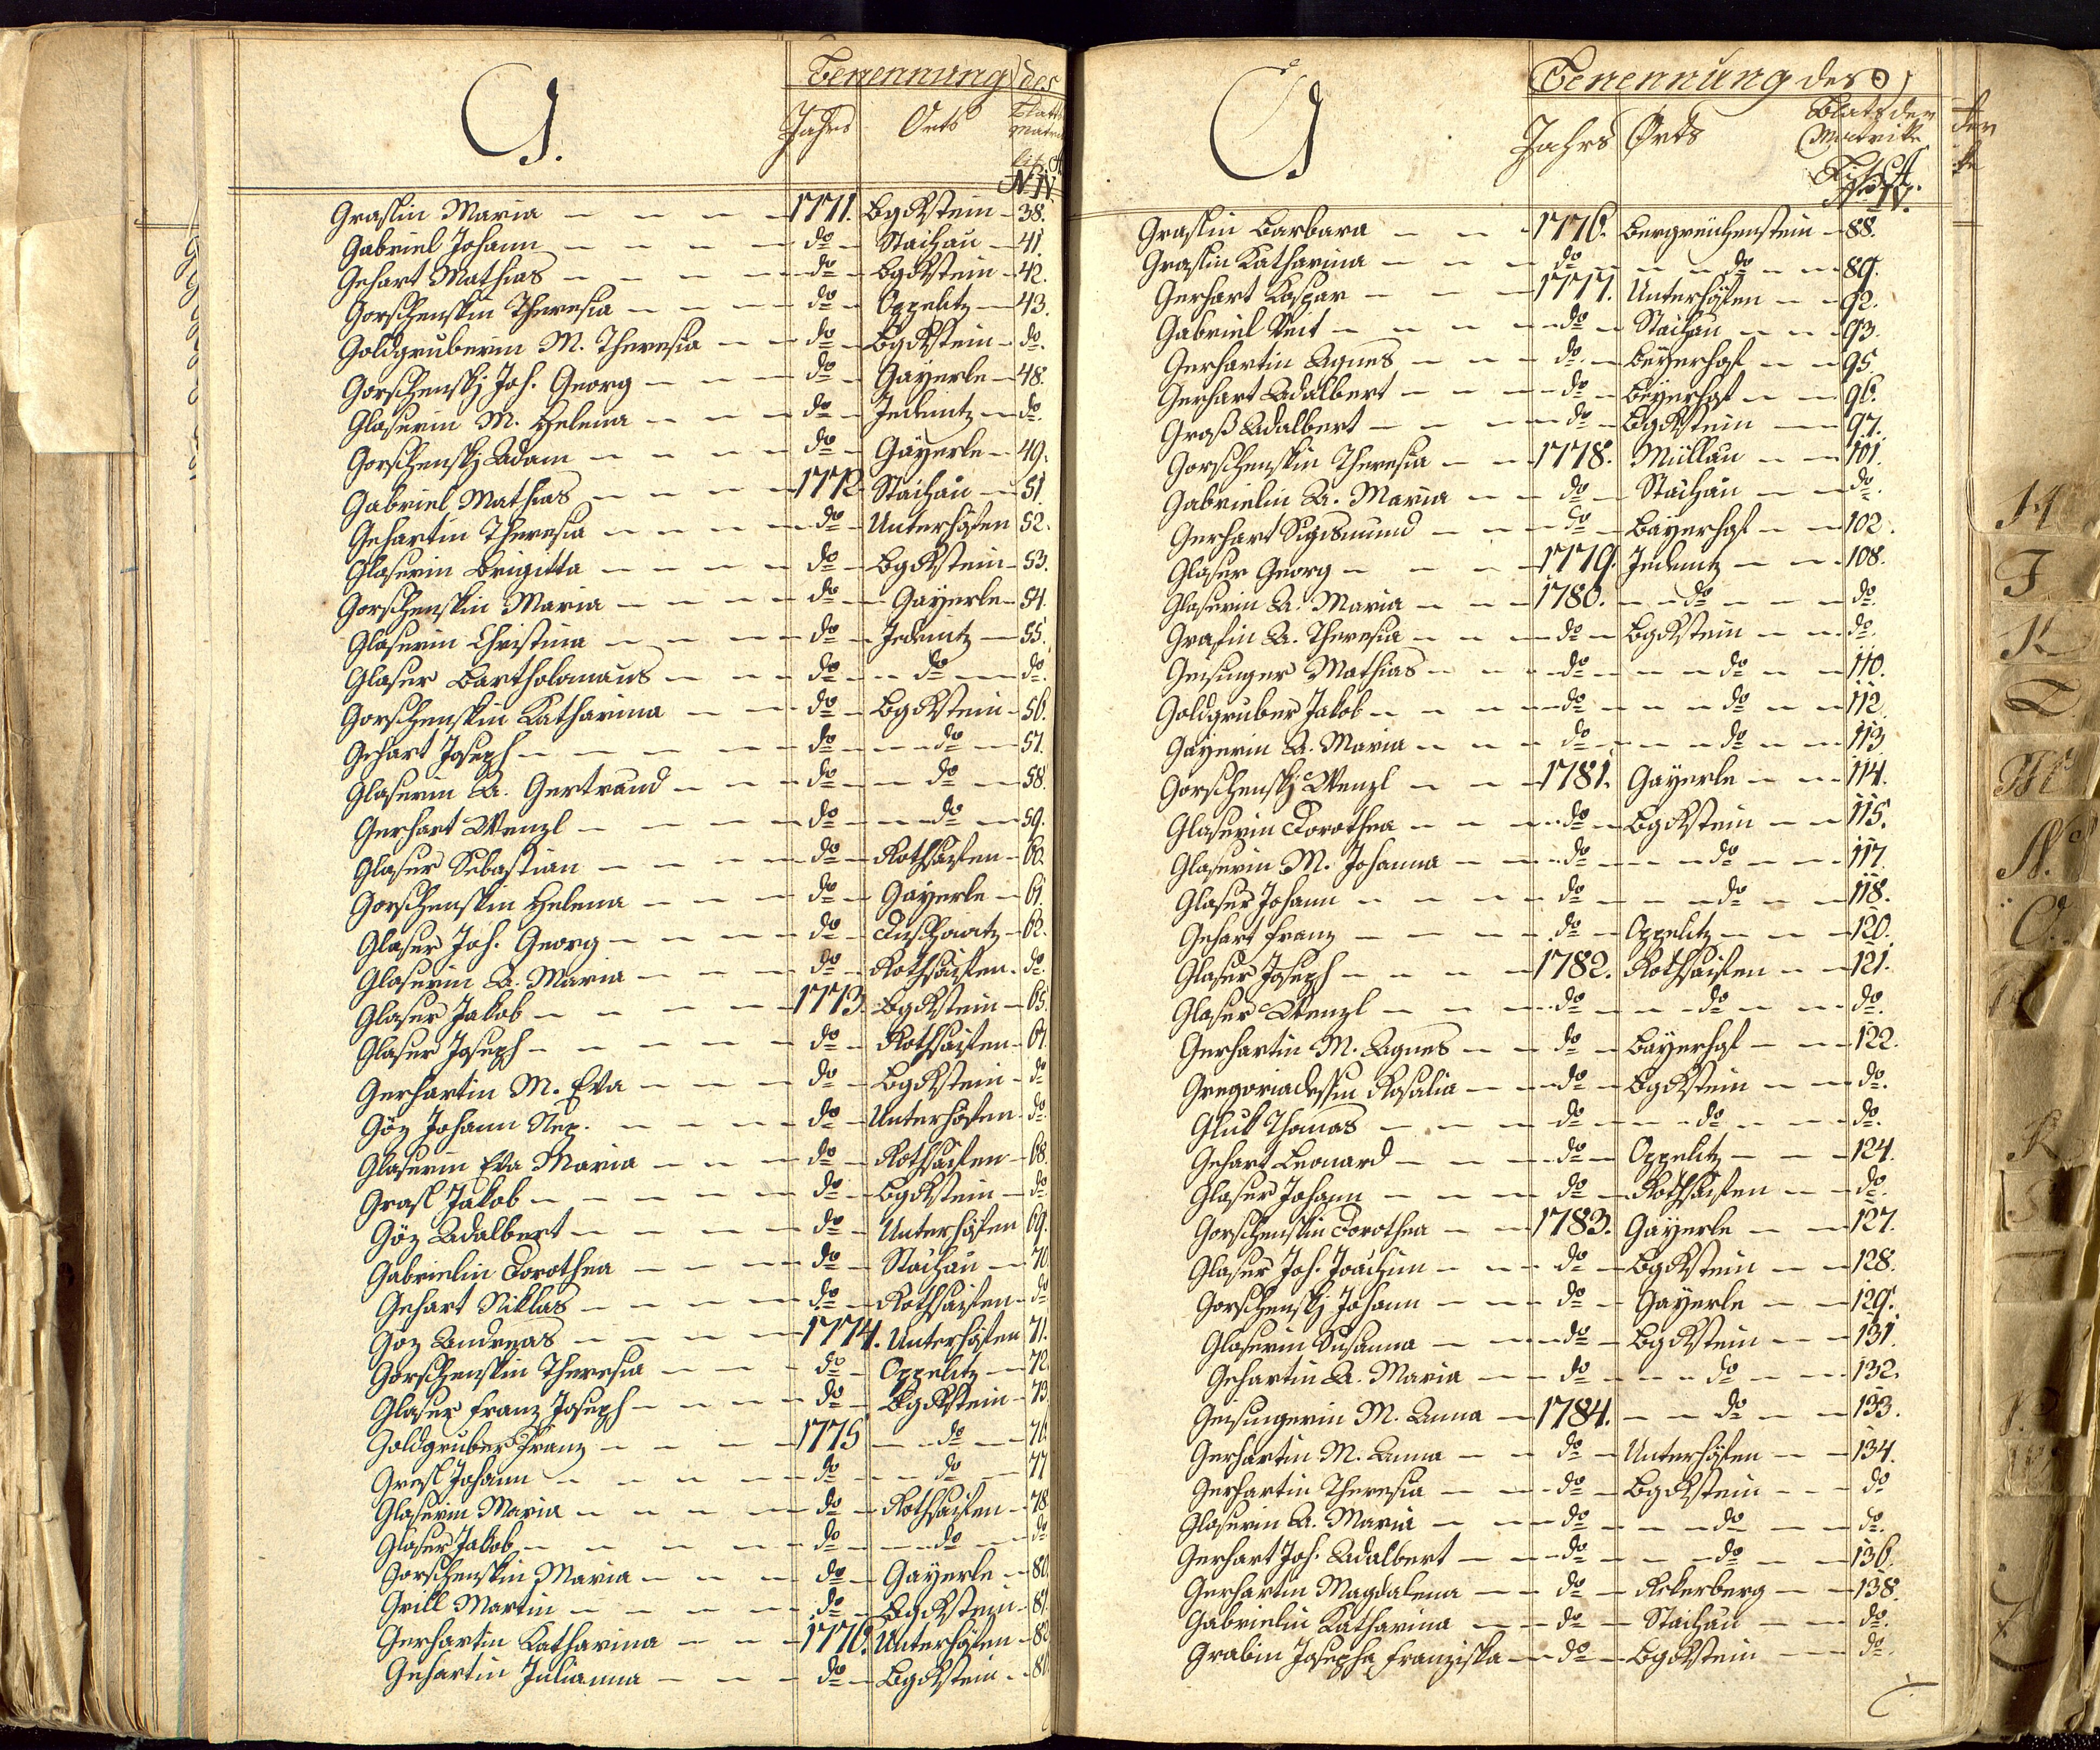 G.
Benennung des
Jahrs Orts Blatts Matrik
Lit. A
N IV
Graslin Maria 1771. Bgrstein 38.
Gabriel Johann do Stachau 41.
Gehart Mathias do Bgrstein 42.
Gorschenskin Theresia do Oppelitz 43.
Goldgruberin M. Theresia do Bgrstein do.
Gorschenskj Joh. Georg do Gayerle 48.
Glaserin M. Helena do Jedenitz do.
Gorschenskj Adam do Gayerle 49.
Gabriel Mathias 1772 Stachau 51.
Gehartin Theresia do Unterhöfen 52.
Glaserin Brigitta do Bgrstein 53.
Gorschenskin Maria do Gayerle 54.
Glaserin Christina do Jedenitz 55.
Glaser Bartholomäus do do do.
Gorschenskin Katharina do Bgrstein 56.
Gehart Joseph do do 57.
Glaserin A. Gertraud do do 58.
Gerhart Wenzl do do 59.
Glaser Sebastian do Rothsaisen 60.
Gorschenskin Helena do Gayerle 61.
Glaser Joh. Georg do 62.
Glaserin A. Maria do Rothsaisen do.
Glaser Jakob 1773. Bgrstein 65.
Glaser Joseph do Rothsaisen 67.
Gerhartin M. Eva do Bgrstein do
Göz Johann Nep. do Unterhöfen do
Glaserin Eva Maria do Rothsaisen 68.
Grasl Jakob do Bgrstein do
Göz Adalbert do Unterhöfen 69.
Gabrielin Dorothea do Stachau 70
Gehart Niklas do Rothsaisen do
Göz Andreas 1774. Unterhöfen 71.
Gorschenskin Theresia do Oppelitz 72.
Glaser Franz Joseph do Bgrstein 73
Goldgruber Franz 1775 do 76.
Grasl Johann do do 77
Glaserin Maria do Rothsaisen 78
Glaser Jakob do do do
Gorschenskin Maria do Gayerle 80.
Grill Martin do Bgrstein 81.
Gerhartin Katharina 1776. Unterhöfen 82
Gehartin Julianna do Bgrstein
G
Benennung des
Jahrs Orts Blats der Matrik
Lit. A.
No IV.
Graslin Barbara 1776. Bergreichenstein 88.
Graslin Katharina do do 89.
Gerhart Kaspar 1777. Unterhöfen 92.
Gabriel Veit do Stachau 93.
Gerhartin Agnes do Beyerhof 95.
Gerhart Adalbert do Beyerhof 96.
Groß Adalbert do Bgrstein 97.
Gorschenskin Theresia 1778. Müllau 101.
Gabrielin A. Maria do Stachau do.
Gerhart Sigismund do Bayerhof 102.
Glaser Georg 1779. Jedenitz 108.
Glaserin A. Maria 1780. do do.
Grasin A. Theresia do Bgrstein do.
Geisinger Mathias do do 110.
Goldgruber Jakob do do 112.
Gayerin A. Maria do do 113
Gorschenskj Wenzl 1781. Gayerle 114.
Glaserin Dorothea do Bgrstein 115.
Glaserin M. Johanna do do 117.
Glaser Johann do do 118.
Gehart Franz do Oppelitz 120.
Glaser Joseph 1782. Rothsaisen 121.
Glaser Wenzl do do do.
Gerhartin M. Agnes do Bayerhof 122.
Gregoriadessin Rosalia do Bgrstein do.
Gluk Thomas do do do.
Gehart Leonard do Oppelitz 124.
Glaser Johann do Rothsaisen do.
Gorschenskin Dorothea 1783. Gayerle 127.
Glaser Joh. Joachim do Bgrstein 128.
Gorschenskj Johann do Gayerle 129.
Glaserin Susanna do Bgrstein 131.
Gehartin A. Maria do do 132.
Geisingerin M. Anna 1784. do 133.
Gerhartin M. Anna do Unterhöfen 134.
Gerhartin Theresia do Bgrstein do
Glaserin A. Maria do do do.
Gerhart Joh. Adalbert do do 136.
Gerhartin Magdalena do Ackerberg 138.
Gabrielin Katharina do Stachau do.
Grabin Josepha Franziska do Bgrstein do.
H
J
K
L
M
N.
O.
R
S